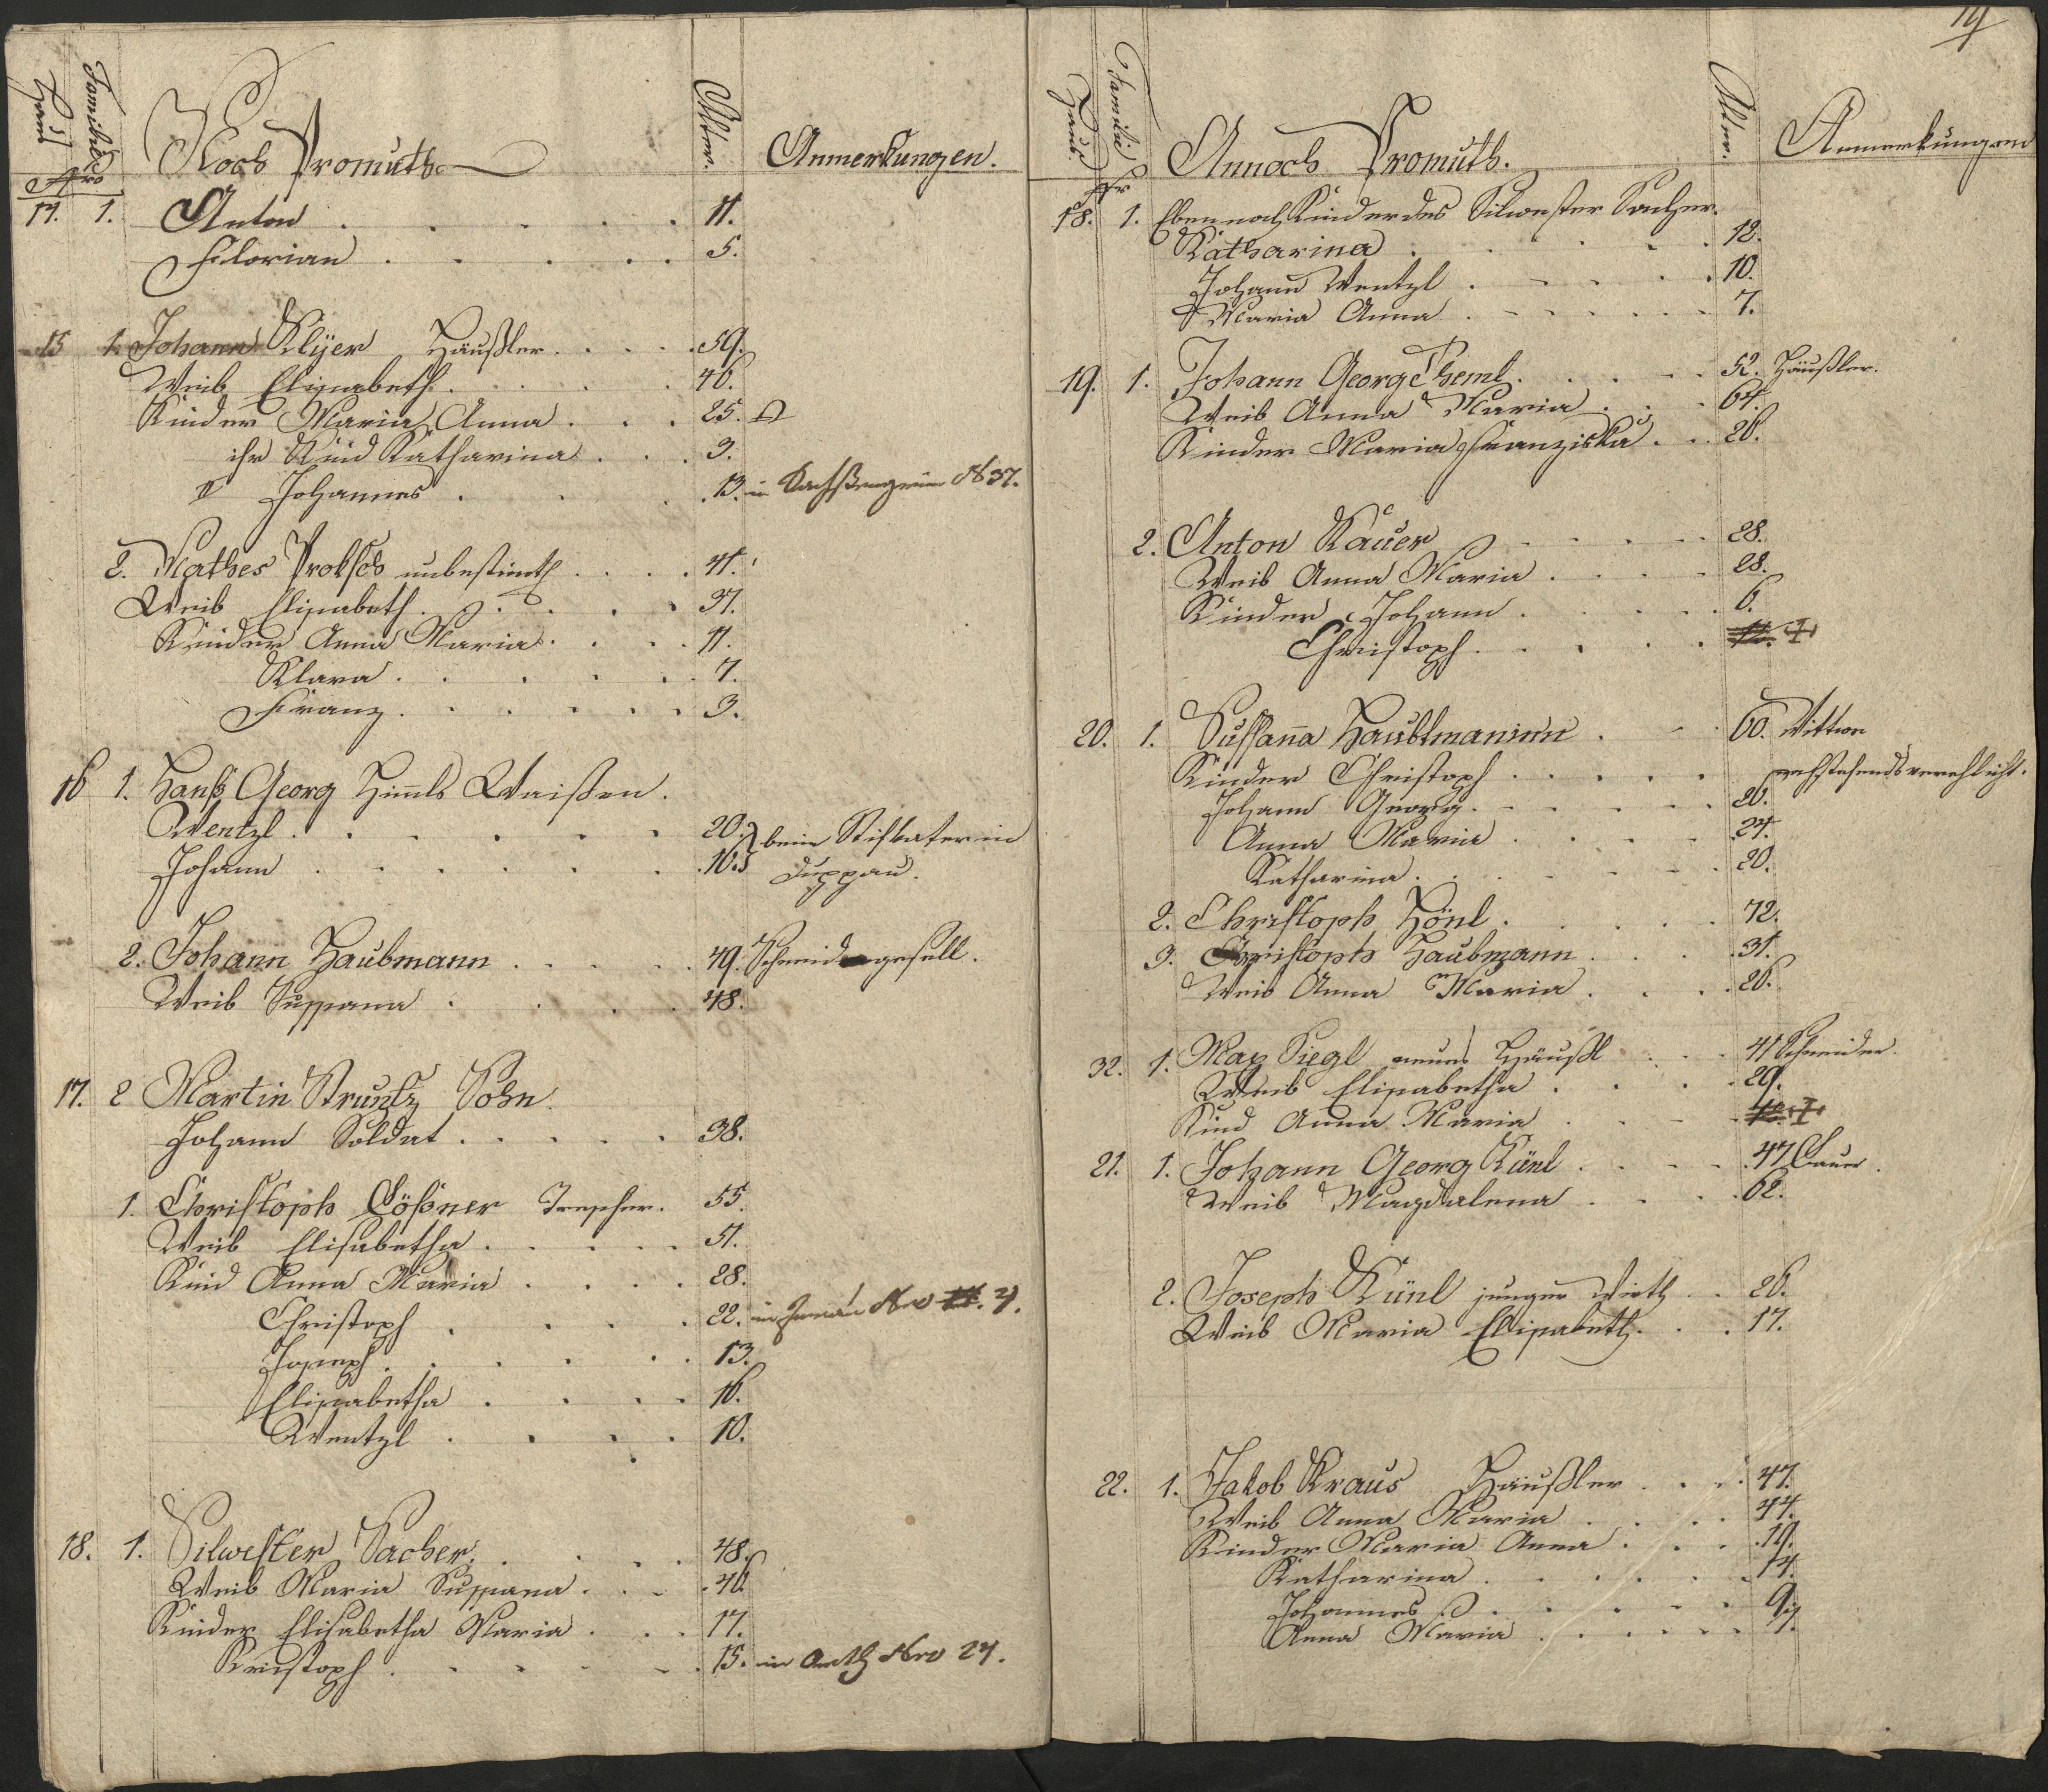 Haus Familie Noch Promuth Alter. Anmerkungen.
Nro
14. 1. Anton 11.
Florian 5.
15 1. Johann Klijer Häußler 59.
Weib Elisabeth 46.
Kinder Maria Anna 25.
ihr Kind Katharina 3.
Johannes 13. in N 37.
2. Mathes Proksch unbestimt 41.
Weib Elisabeth 37.
Kinder Anna Maria 11.
Klara 7.
Franz 3.
16 1. Hanß Georg Himls Waißen.
Wentzl 20. beim Stifvater in
Johann 16. Duppau.
2. Johann Haubmann 49. Schneidergesell.
Weib Sussana 48.
17. 2 Martin Struntz Sohn
Johann Soldat 38.
1. Christoph Lößner 55.
Weib Elisabetha 51.
Kind Anna Maria 28.
Christoph 22. in Nro 4.
Joseph 13.
Elisabetha 16.
Wentzl 10.
18. 1. Silwester Sacher 48.
Weib Maria Sussana 46.
Kinder Elisabetha Maria 17.
Kristoph 15. in Nro 24.
19
Haus Familie Annoch Promuth. Alter. Anmerkungen
Nr
18. 1. Eben noch Kinder des Silwester Sacher.
Katharina 12.
Johann Wentzl 10.
Maria Anna 7.
19. 1. Johann Georg Theml 52. Häußler.
Weib Anna Maria 64.
Kinder Maria Franziska 26.
2. Anton Kauer 28.
Weib Anna Maria 28.
Kinder Johann 6.
Christoph
20. 1. Sussana Haubtmaninn 60. Wittwe
Kinder Christoph verehlicht.
Johann Georg 26.
Anna Maria 24.
Katharina 20.
2. Christoph Hönl 72.
3. Christoph Haubmann 31.
Weib Anna Maria 26.
32. 1. Max Siegl neues Häußl 41 Schneider.
Weib Elisabetha 29.
Kind Anna Maria
21. 1. Johann Georg Künl 47 Bauer.
Weib Magdalena 62.
2. Joseph Künl junger Wirth 26.
Weib Maria Elisabeth 17.
22. 1. Jakob Kraus Häußler 47.
Weib Anna Maria 44.
Kinder Maria Anna 19.
Katharina 14.
Johannes 9.
Anna Maria 7.